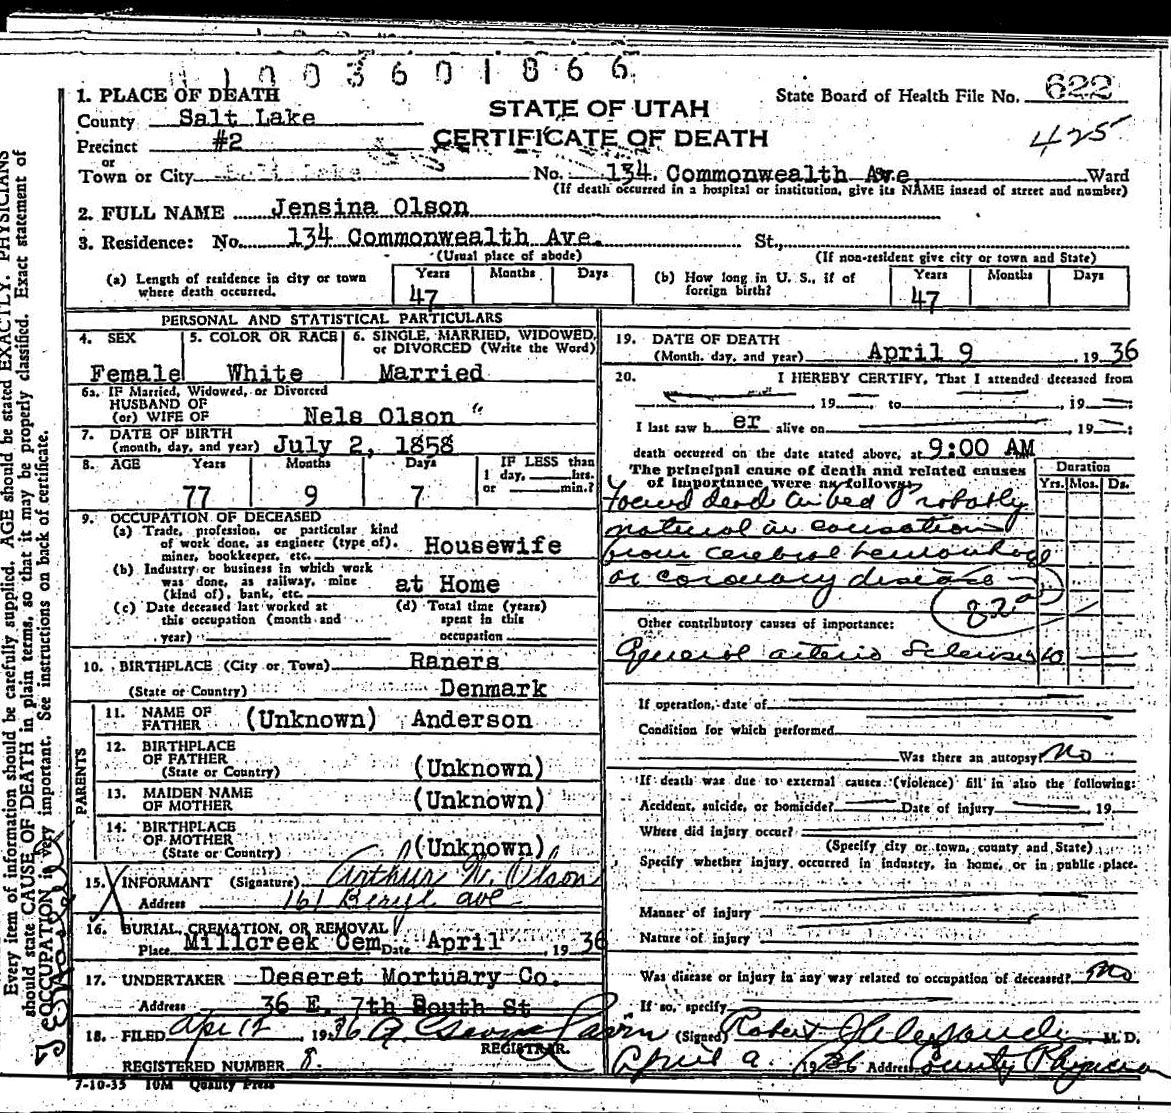 1003601866
1. PLACE OF DEATH
STATE OF UTAH
State Board of Health File No. 622
County Salt Lake
CERTIFICATE OF DEATH
425
Precinct #2
or
Town or City Salt Lake No. 134 Commonwealth Ave. Ward
(If death occurred in a hospital or institution, give its NAME insead of street and number)
2. FULL NAME Jensina Olson
3. Residence: No. 134 Commonwealth Ave. St.,
(Usual place of abode) (If non-resident give city or town and State)
(a) Length of residence in city or town where death occurred. Years 47 Months Days
(b) How long in U. S., if of foreign birth? Years 47 Months Days
PERSONAL AND STATISTICAL PARTICULARS
4. SEX Female
5. COLOR OR RACE White
6. SINGLE, MARRIED, WIDOWED, or DIVORCED (Write the Word) Married
6a. IF Married, Widowed, or Divorced
HUSBAND OF
(or) WIFE OF Nels Olson
7. DATE OF BIRTH
(month, day, and year) July 2, 1858
8. AGE Years 77 Months 9 Days 7
IF LESS than 1 day, hrs. or min.?
9. OCCUPATION OF DECEASED
(a) Trade, profession, or particular kind of work done, as engineer (type of), miner, bookkeeper, etc. Housewife
(b) Industry or business in which work was done, as railway, mine (kind of), bank, etc. at Home
(c) Date deceased last worked at this occupation (month and year)
(d) Total time (years) spent in this occupation
10. BIRTHPLACE (City or Town) Raners
(State or Country) Denmark
PARENTS
11. NAME OF FATHER (Unknown) Anderson
12. BIRTHPLACE OF FATHER (State or Country) (Unknown)
13. MAIDEN NAME OF MOTHER (Unknown)
14. BIRTHPLACE OF MOTHER (State or Country) (Unknown)
15. INFORMANT (Signature) Arthur N. Olson
Address 161 Beryl ave
16. BURIAL, CREMATION, OR REMOVAL
Place Millcreek Cem Date April 1936
17. UNDERTAKER Deseret Mortuary Co.
Address 36 E. 7th South St
18. FILED Apr 12, 1936
REGISTRAR.
REGISTERED NUMBER 8.
7-10-35 10M Quality Press
19. DATE OF DEATH
(Month, day, and year) April 9, 1936
20. I HEREBY CERTIFY, That I attended deceased from
, 19 to , 19 ;
I last saw h er alive on , 19 ;
death occurred on the date stated above, at 9:00 AM
The principal cause of death and related causes of importance were as follows:
Duration
Yrs. Mos. Ds.
Found dead in bed Probably
natural in causation
from cerebral hemorrhage
or coronary disease
82a
Other contributory causes of importance:
General arterio Sclerosis 10
If operation, date of
Condition for which performed
Was there an autopsy? No
If death was due to external causes (violence) fill in also the following:
Accident, suicide, or homicide? Date of injury 19
Where did injury occur?
(Specify city or town, county and State)
Specify whether injury occurred in industry, in home, or in public place.
Manner of injury
Nature of injury
Was disease or injury in any way related to occupation of deceased? No
If so, specify
(Signed) Robert M. D.
April 9 1936 Address County Physician
Every item of information should be carefully supplied. AGE should be stated EXACTLY. PHYSICIANS
should state CAUSE OF DEATH in plain terms, so that it may be properly classified. Exact statement of
OCCUPATION is very important. See instructions on back of certificate.